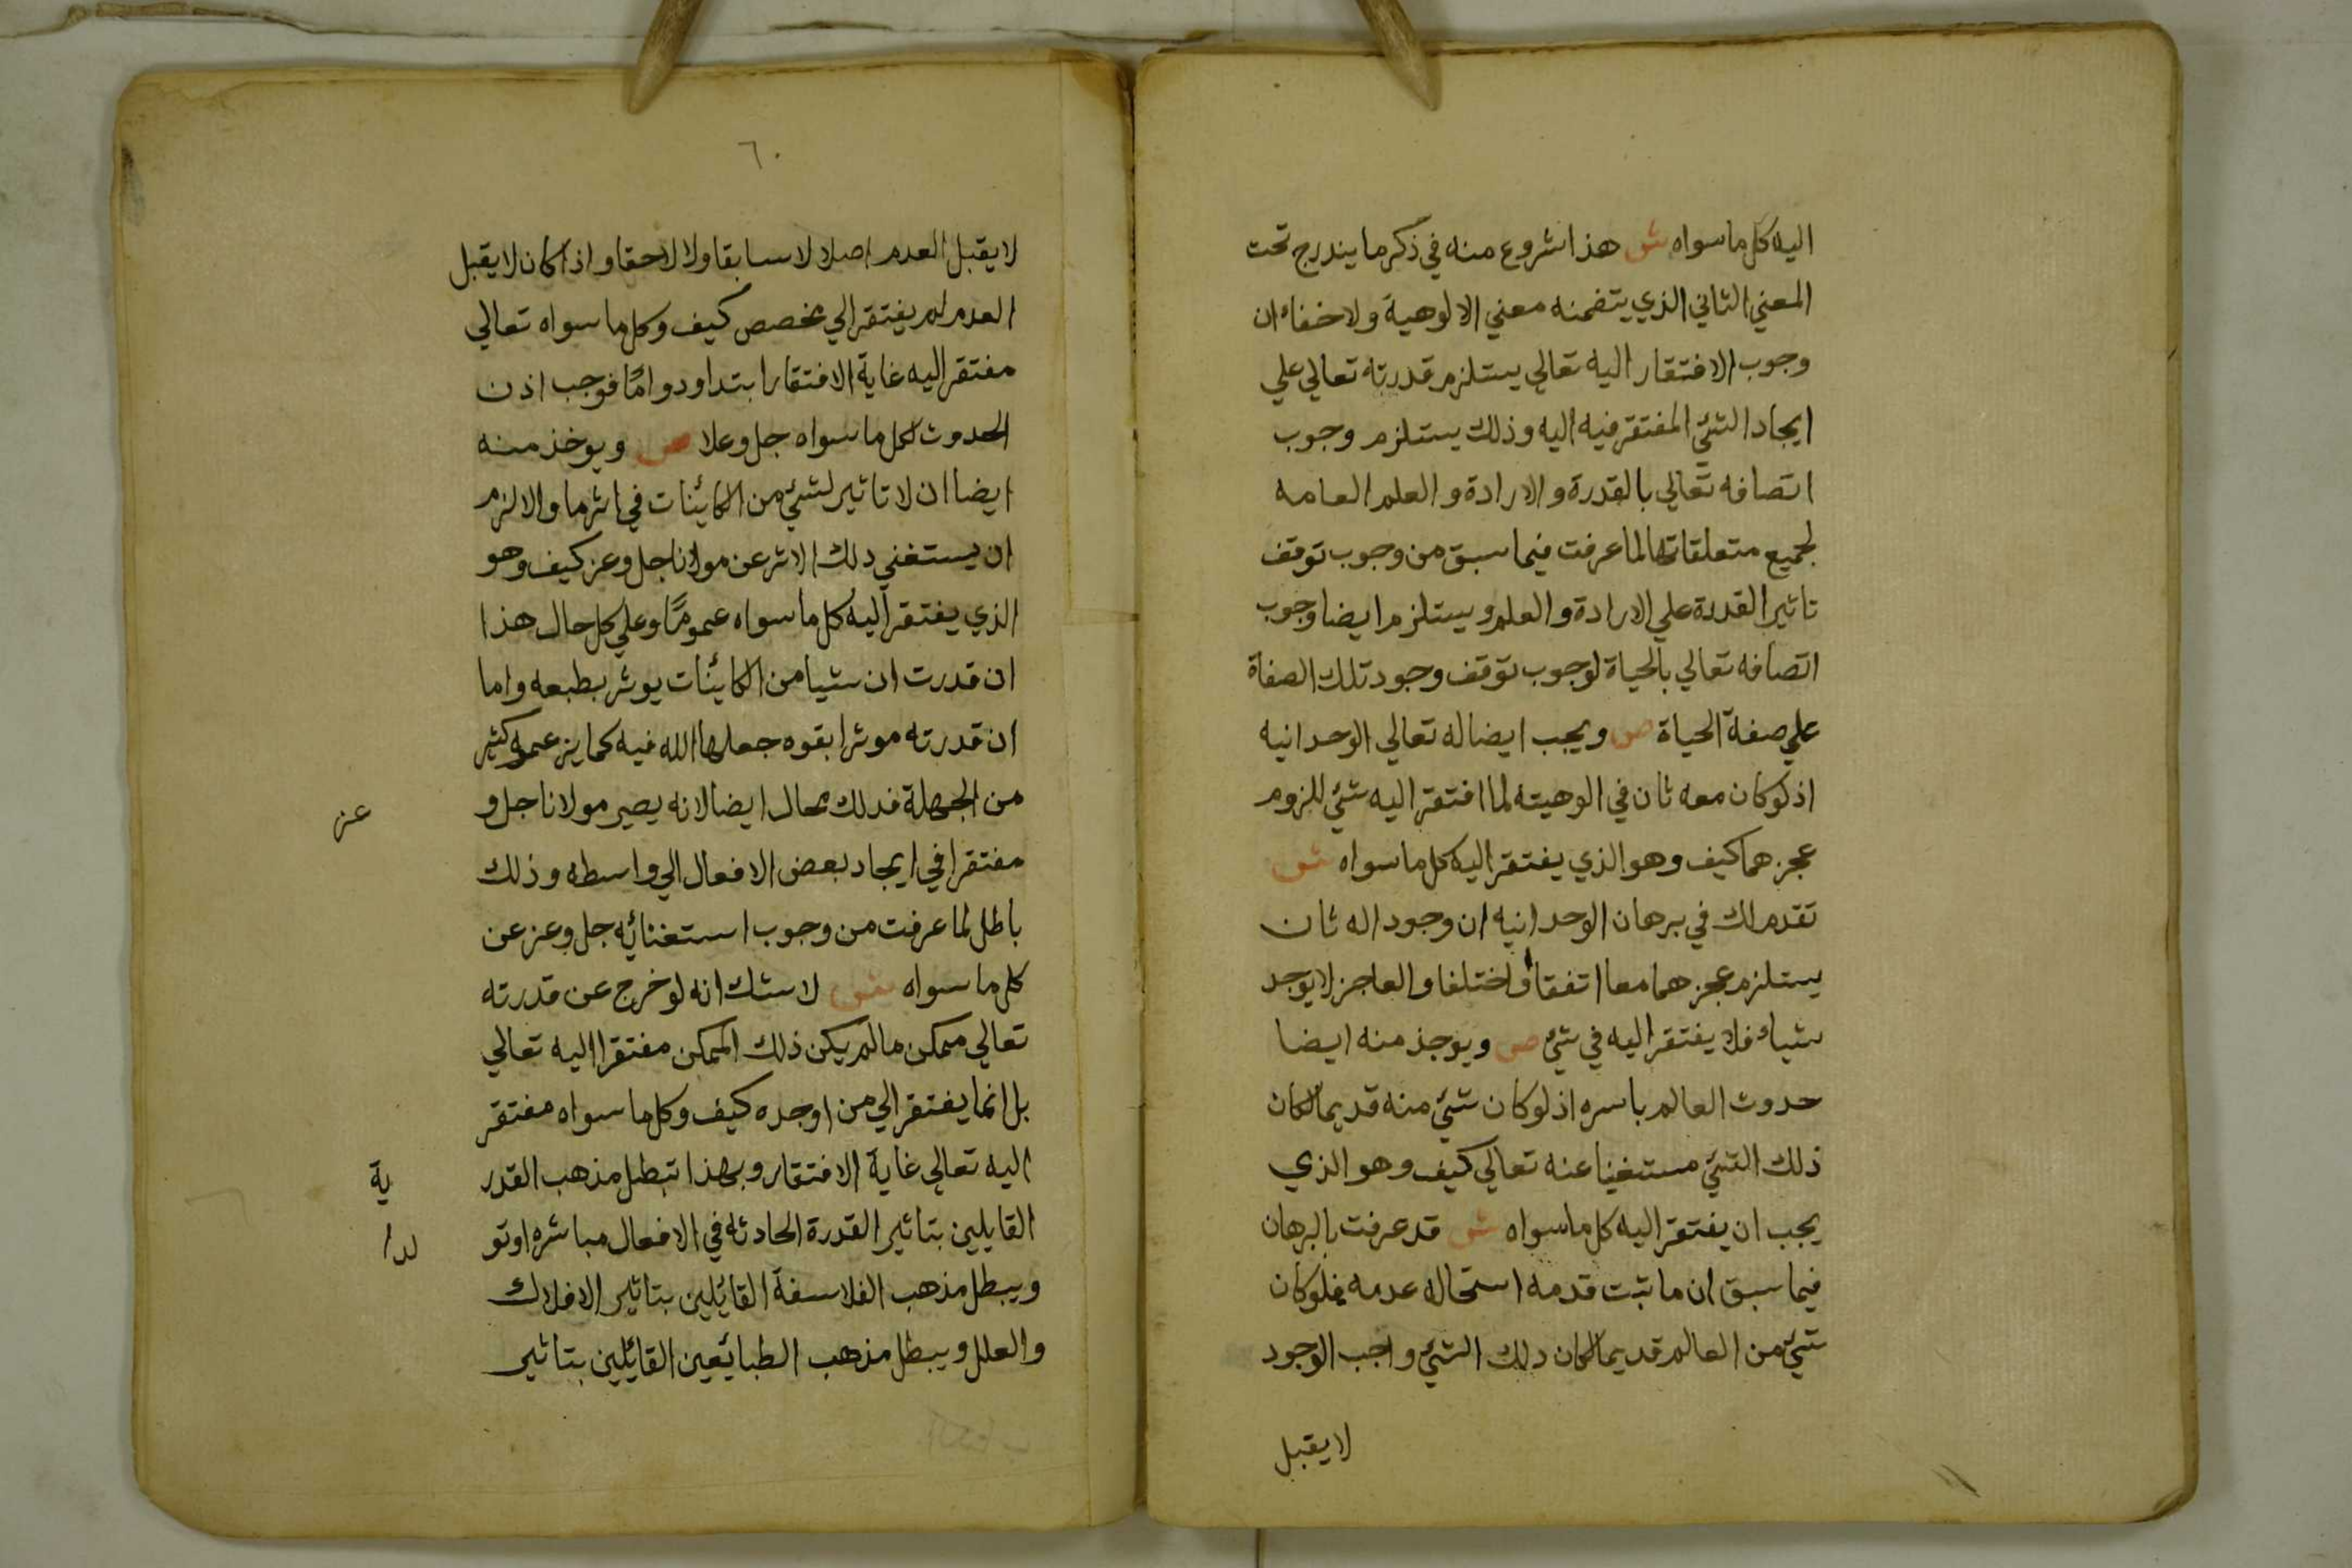 اليه كل ما سواه ش هذا شروع منه في ذكر ما يندرج تحت
المعني الثاني الذي يتضمنه معني الالوهية ولا خفاء ان
وجوب الافتقار اليه تعالي يستلزم قدرته تعالي علي
ايجاد الشئ المفتقر فيه اليه وذلك يستلزم وجوب
اتصافه تعالي بالقدرة والارادة والعلم العامه
لجميع متعلقاتها لما عرفت فيما سبق من وجوب توقف
تاثير القدرة علي الارادة والعلم ويستلزم ايضا وجوب
اتصافه تعالي بالحياة لوجوب توقف وجود تلك الصفاة
علي صفة الحياة ص ويجب ايضا له تعالي الوحدانيه
اذ لو كان معه ثان في الوهيته لما افتقر اليه شئ للزوم
عجزهما كيف وهو الذي يفتقر اليه كل ما سواه ش
تقدم لك في برهان الوحدانيه ان وجود اله ثان
يستلزم عجزهما معا اتفقا او اختلفا والعاجز لا يوجد
شياء فلا يفتقر اليه في شئ ص ويوجذ منه ايضا
حدوث العالم باسره اذ لو كان شئ منه قديما لكان
ذلك الشئ مستغنيا عنه تعالي كيف وهو الذي
يجب ان يفتقر اليه كل ما سواه ش قد عرفت بالبرهان
فيما سبق ان ما ثبت قدمه استحال عدمه فلو كان
شئ من العالم قديما لكان دلك الشئ واجب الوجود
لا يقبل
٦٠
لا يقبل العدم اصلا لا سابقا ولا لاحقا واذا كان لا يقبل
العدم لم يفتقر الي مخصص كيف وكل ما سواه تعالي
مفتقر اليه غاية الافتقار ابتدا ودوامًا فوجب اذن
الحدوث لكل ما سواه جل وعلا ص ويوخذ منه
ايضا ان لا تاثير لشئ من الكائنات في اثر ما والا لزم
ان يستغني دلك الاثر عن مولانا جل وعز كيف وهو
الذي يفتقر اليه كل ما سواه عمومًا وعلي كل حال هذا
ان قدرت ان شيا من الكائنات يوثر بطبعه واما
ان قدرته موثرا بقوه جعلها الله فيه كما يزعمه كثير
من الجهلة فدلك محال ايضا لانه يصير مولانا جل و
عز
مفتقرا في ايجاد بعض الافعال الي واسطه وذلك
باطل لما عرفت من وجوب استغنائه جل وعز عن
كل ما سواه ش لا شك انه لو خرج عن قدرته
تعالي ممكن ما لم يكن ذلك الممكن مفتقرا اليه تعالي
بل انما يفتقر الي من اوجده كيف وكل ما سواه مفتقر
اليه تعالي غاية الافتقار وبهذا تبطل مذهب القدر
ية
القايلين بتاثير القدرة الحادثه في الافعال مباشره او تو
لدا
ويبطل مذهب الفلاسفة القائلين بتاثير الافلاك
والعلل ويبطل مذهب الطبائعين القائلين بتاثير